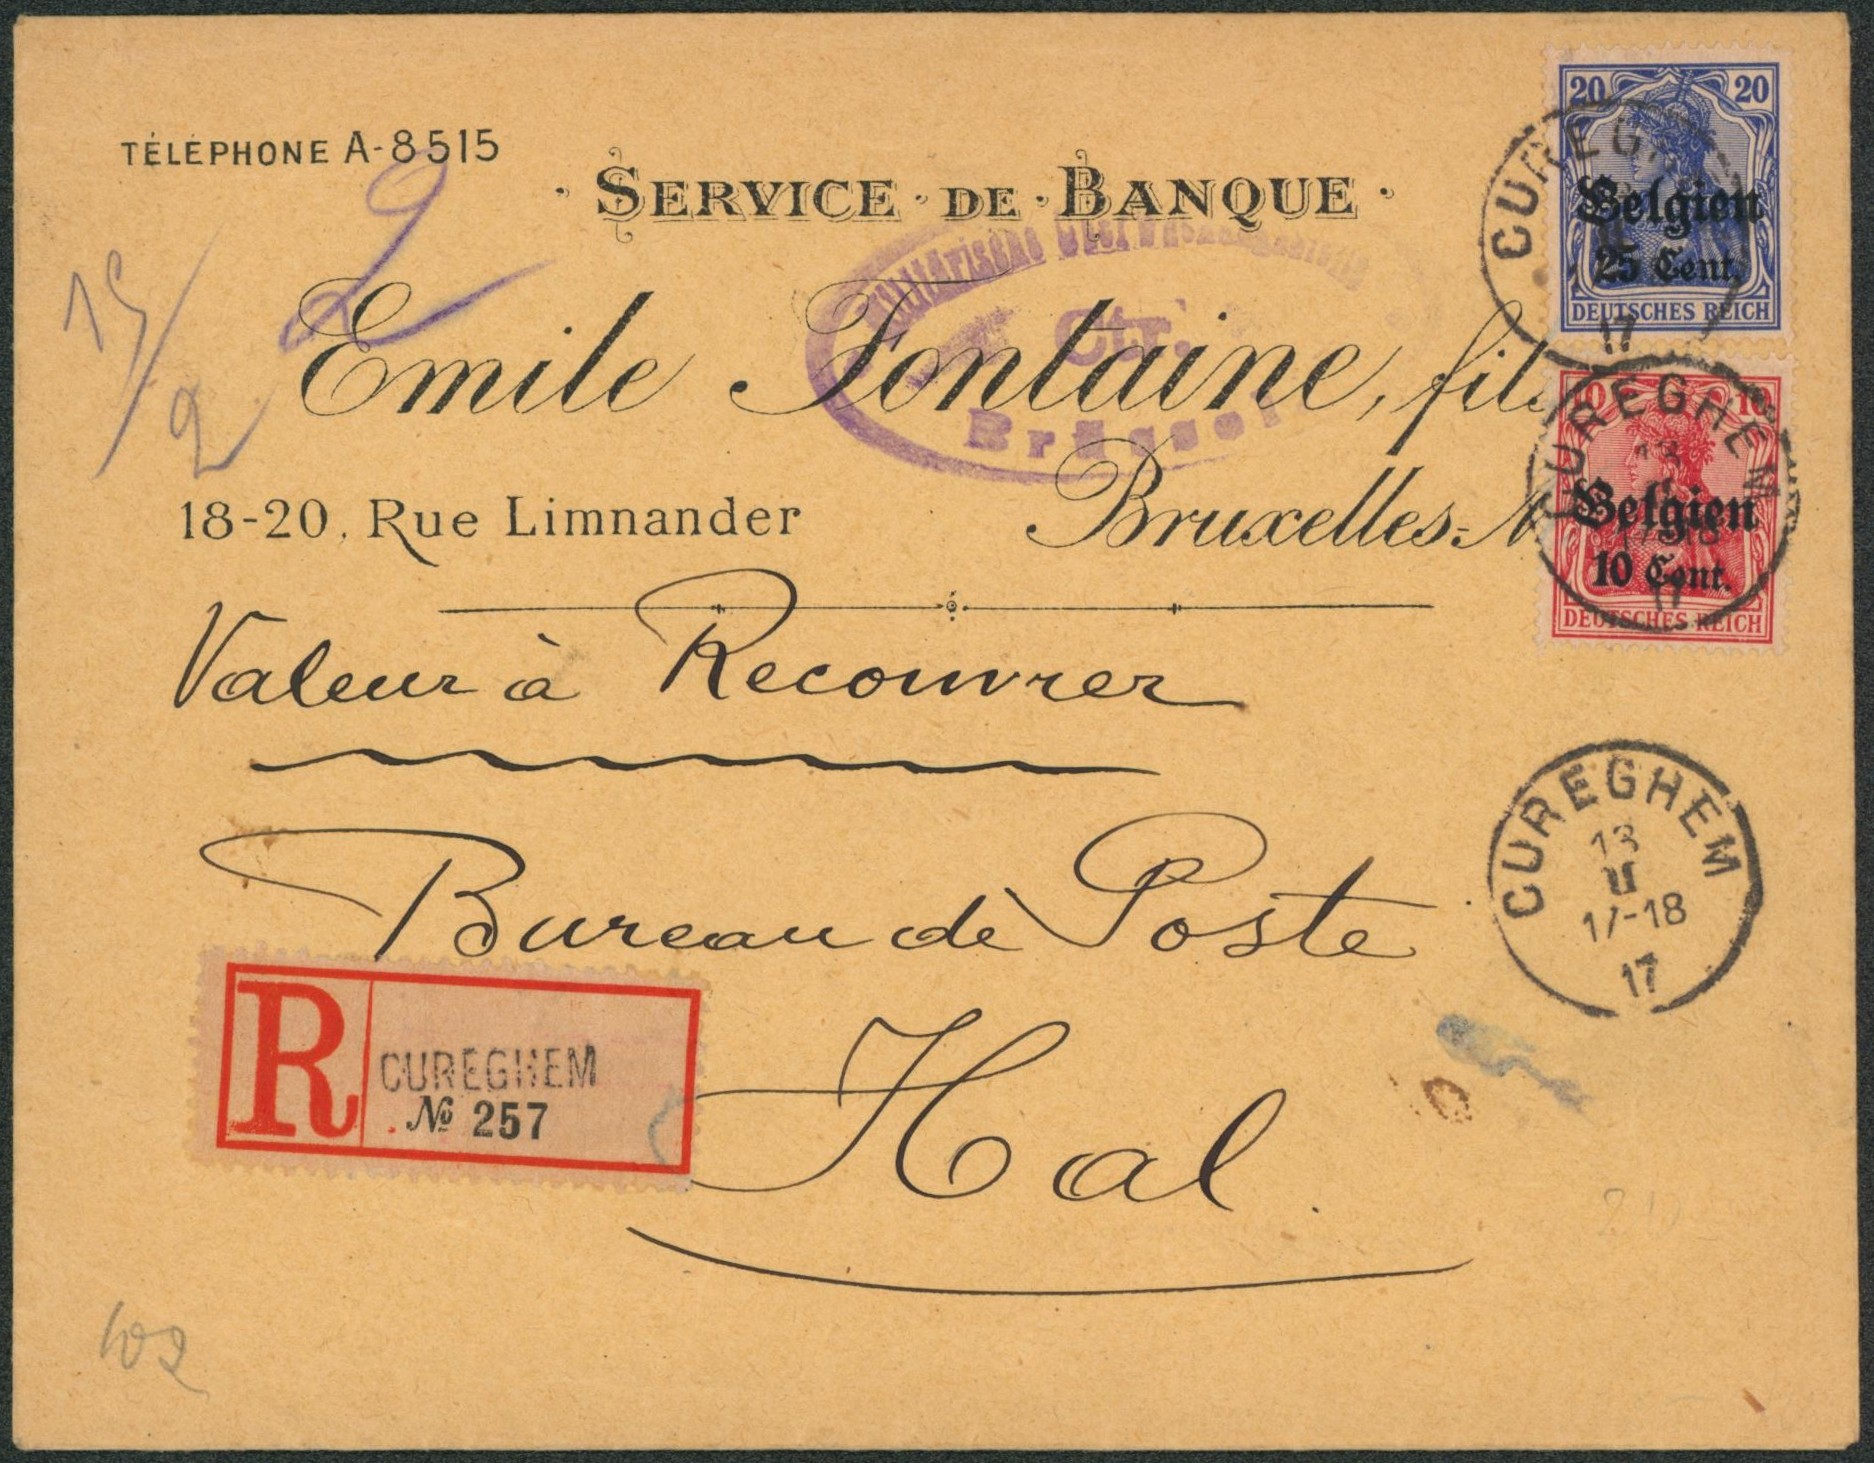 TÉLÉPHONE A-8515
· SERVICE · DE · BANQUE ·
Emile Fontaine, fils
18-20, Rue Limnander
Bruxelles-M
Militärische Überwachungsstelle
Ctr.
Brüssel
2
15/2
20 20
Belgien
25 Cent.
DEUTSCHES REICH
CUREGHEM
17
10 10
Belgien
10 Cent.
DEUTSCHES REICH
CUREGHEM
13
17-18
17
Valeur à Recouvrer
Bureau de Poste
Hal
CUREGHEM
13
II
17-18
17
R
CUREGHEM
№ 257
102